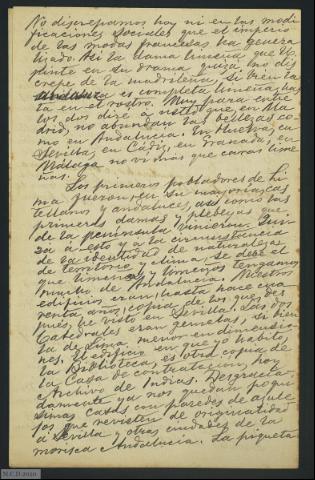 No discrepamos hoy ni en las modi-
ficaciones sociales que el imperio
de las modas francesas ha genera-
lizado. Así la dama limeña que U.
pinte en su drama quizá no dis
crepe de la madrileña, si bien la
andaluza es completa limeña, has
ta en el rostro. Muy para entre
los dos diré a usted que en Ma-
drid, no abundan las bellezas co-
mo en Andalucía. En Huelva, en
Sevilla, en Cádiz, en Granada, en
Málaga no vi mas que caras lime
ñas.
Los primeros pobladores de Li-
ma fueron, en su mayoría, cas
tellanos y andaluces, así como las
primeras damas y plebeyas que
de la península vinieron. Qui
zá a esto y a la circunstancia
de la identidad de naturaleza
de territorio y clima, se debe el
que limeñas y limeños tengamos
mucho de Andalucía. Nuestros
edificios eran, hasta hace cua
renta años, copia de los que des
pués, he visto en Sevilla. Las dos
Catedrales eran gemelas, si bien
la de Lima, menor en dimensio
nes. El edificio en que yo habito,
la Biblioteca, es otra copia de
la Casa de contratacion, hoy
Archivo de Indias. Desgracia-
damente ya nos quedan poqui
simas casas con paredes de azule
jos que revisten de originalidad
a Sevilla y otras ciudades de la
morisca Andalucía. La piqueta
N.C.D 2010